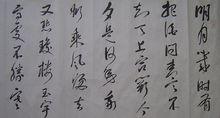 明月幾時有
把酒問青天不
知天上宮闕今
夕是何年我
欲乘風歸去
又恐瓊樓玉宇
高處不勝寒